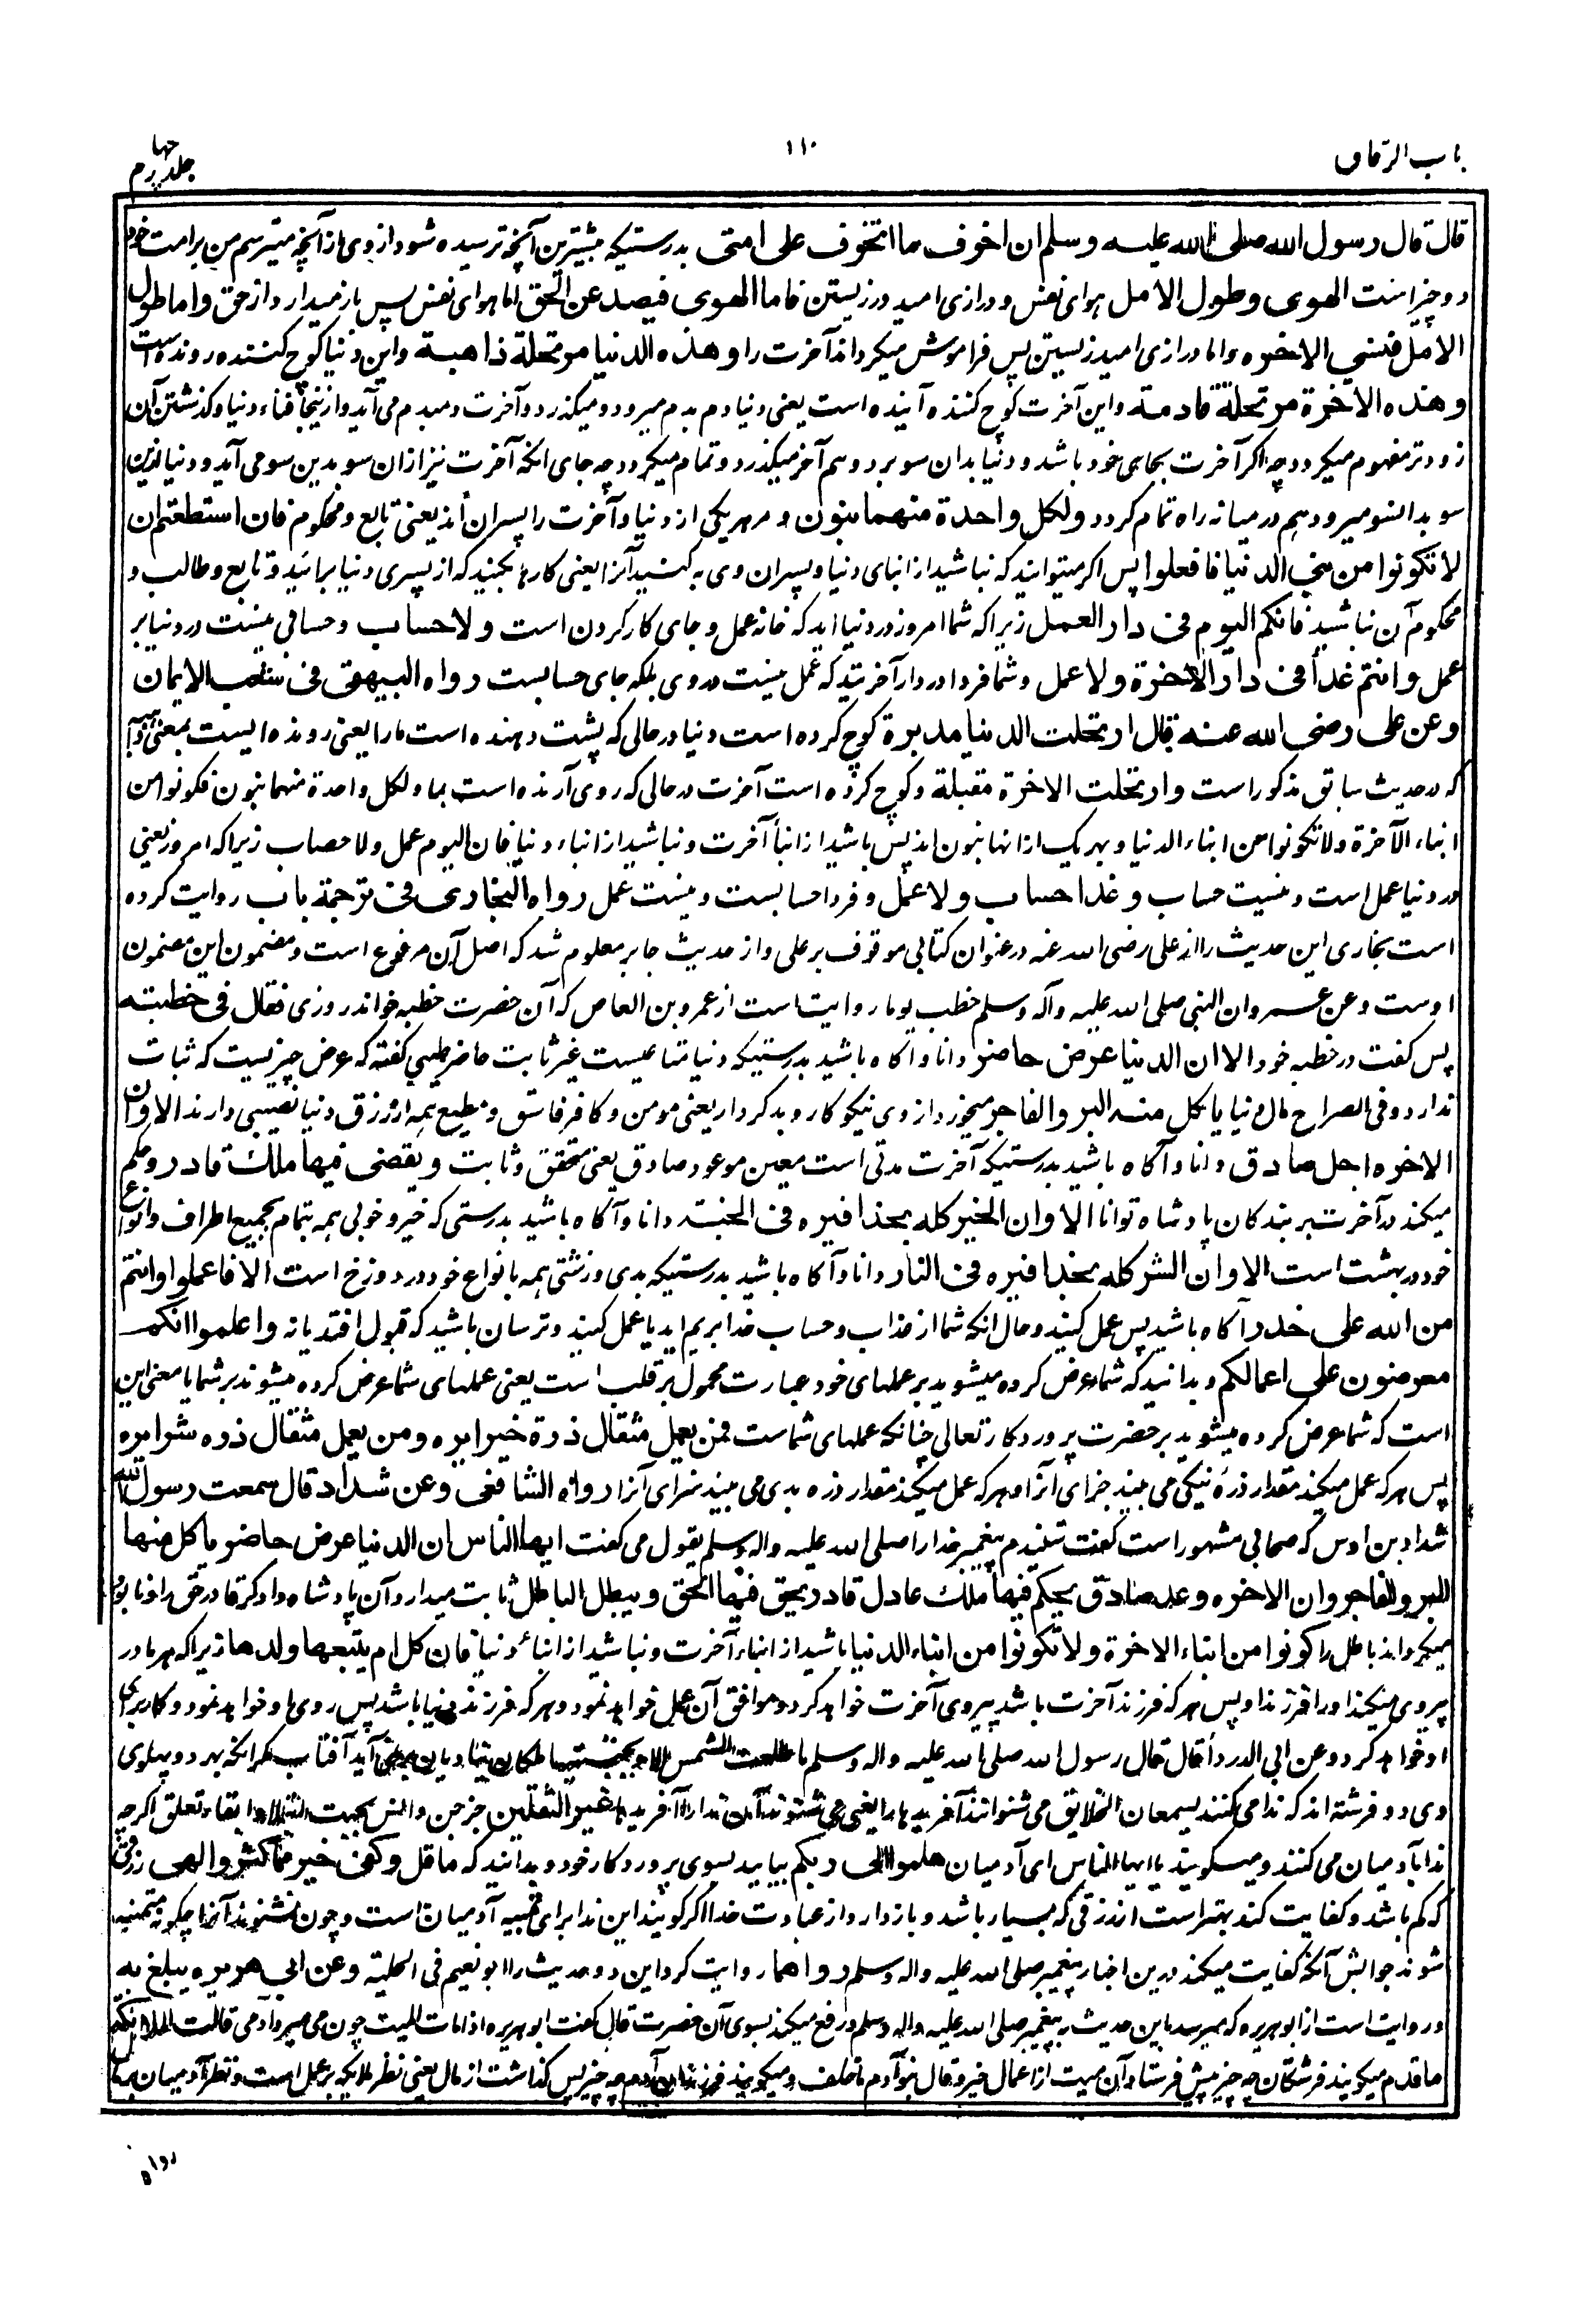 باب الرقاق
۱۱۰
جلد چهارم
قال قال رسول الله صلی الله علیه وسلم ان اخوف ما اتخوف علی امتی بدرستیکه بیشترین آنچه ترسیده شود از وی از آنچه میترسم من بر امت خود
دو چیز است الهوی وطول الامل هوای نفس ودرازی امید در زیستن فاما الهوی فیصد عن الحق اما هوای نفس پس باز میدارد از حق واما طول
الامل فینسی الاخره واما درازی امید زیستن پس فراموش میگرداند آخرت را وهذه الدنیا مرتحلة ذاهبة واین دنیا کوچ کننده رونده است
وهذه الاخرة مرتحلة قادمة واین آخرت کوچ کننده آینده است یعنی دنیا دم بدم میرود ومیگذرد وآخرت دمبدم می آید وازینجا فناء دنیا وگذشتن آن
زودتر مفهوم میگردد چه اگر آخرت بجای خود باشد ودنیا بدان سو برد وهم آخر میگذرد وتمام میگردد چه جای انکه آخرت نیز ازان سو بدین سو می آید ودنیا ازین
سو بدانسو میرود هم در میانه راه تمام گردد ولکل واحدة منهما بنون و مر هر یکی از دنیا وآخرت را پسران اند یعنی تابع ومحکوم فان استطعتم ان
لا تکونوا من بنی الدنیا فافعلوا پس اگر میتوانید که نباشید از ابنای دنیا وپسران وی بکنید آنرا یعنی کاری بکنید که از پسری دنیا برائید وتابع وطالب و
محکوم آن نباشید فانکم الیوم فی دار العمل زیرا که شما امروز در دنیا اید که خانه عمل وجای کار کردن است ولا حساب وحسابی نیست در دنیا بر
عمل وانتم غدا فی دار الاخرة ولا عمل وشما فردا در دار آخرتید که عمل نیست در وی بلکه جای حسابست رواه البیهقی فی شعب الایمان
وعن علی رضی الله عنه قال ارتحلت الدنیا مدبرة کوچ کرده است دنیا در حالی که پشت دهنده است ما را یعنی رونده ایست بمعنی
که در حدیث سابق مذکور است وارتحلت الاخرة مقبلة وکوچ کرده است آخرت در حالی که روی آرنده است بما ولکل واحدة منهما بنون فکونوا من
ابناء الآخرة ولا تکونوا من ابناء الدنیا وبهر یک ازانها بنون اند پس باشید از ابناء آخرت ونباشید از ابناء دنیا فان الیوم عمل ولا حساب زیرا که امروز یعنی
در دنیا عمل است ونیست حساب وغدا حساب ولا عمل وفردا حسابست ونیست عمل رواه البخاری فی ترجمة باب روایت کرده
است بخاری این حدیث را از علی رضی الله عنه در عنوان کتابی موقوف بر علی واز حدیث جابر معلوم شد که اصل آن مرفوع است ومضمون این مضمون
اوست وعن عمرو ان النبی صلی الله علیه وآله وسلم خطب یوما روایت است از عمرو بن العاص که آن حضرت خطبه خواند روزی فقال فی خطبته
پس گفت در خطبه خود الا ان الدنیا عرض حاضر دانا وآگاه باشید بدرستیکه دنیا متاعیست غیر ثابت حاضر طیبی گفته که عرض چیزیست که ثبات
ندارد وفی الصراح مال دنیا یاکل منه البر والفاجر میخورد از وی نیکوکار وبدکردار یعنی مومن وکافر فاسق ومطیع همه از رزق دنیا نصیبی دارند الا وان
الاخره اجل صادق دانا وآگاه باشید بدرستیکه آخرت مدتی است معین موعود صادق یعنی محقق وثابت ویقضی فیها ملک قادر وحکم
میکند در آخرت بر بندگان پادشاه توانا الا وان الخیر کله بحذافیره فی الجنة دانا وآگاه باشید بدرستی که خیر وخوبی همه بتمام بجمیع اطراف وانواع
خود در بهشت است الا وان الشر کله بحذافیره فی النار دانا وآگاه باشید بدرستیکه بدی وزشتی همه بانواع خود در دوزخ است الا فاعملوا وانتم
من الله علی حذر آگاه باشید پس عمل کنید وحال انکه شما از عذاب وحساب خدا بر بیم اید یا عمل کنید وترسان باشید که قبول افتد یا نه واعلموا انکم
معرضون علی اعمالکم وبدانید که شما عرض کرده میشوید بر عملهای خود عبارت محمول بر قلب است یعنی عملهای شما عرض کرده میشوند بر شما یا معنی این
است که شما عرض کرده میشوید بر حضرت پروردکار تعالی چنانکه عملهای شماست فمن یعمل مثقال ذرة خیرا یره ومن یعمل مثقال ذره شرا یره
پس هر که عمل میکند مقدار ذره نیکی می بیند جزای آنرا وهر که عمل میکند مقدار ذره بدی می بیند سزای آنرا رواه الشافعی وعن شداد قال سمعت رسول الله
شداد بن اوس که صحابی مشهور است گفت شنیدم پیغمبر خدا را صلی الله علیه واله وسلم یقول می گفت ایها الناس ان الدنیا عرض حاضر یاکل منها
البر والفاجر وان الاخره وعد صادق یحکم فیها ملک عادل قادر یحق فیها الحق ویبطل الباطل ثابت میدارد آن پادشاه دادگر قادر حق را ونابود
میگرداند باطل را کونوا من ابناء الاخرة ولا تکونوا من ابناء الدنیا باشید از ابناء آخرت ونباشید از ابناء دنیا فان کل ام یتبعها ولدها زیرا که هر مادر
پیروی میکند او را فرزند او پس هر که فرزند آخرت باشد پیروی آخرت خواهد کرد وموافق آن عمل خواهد نمود وهر که فرزند دنیا باشد پس روی او خواهد نمود وکار برای
او خواهد کرد وعن ابی الدرداء قال قال رسول الله صلی الله علیه واله وسلم ما طلعت الشمس الا وبجنبتیها ملکان ینادیان بر نمی آید آفتاب مگر انکه بهر دو پهلوی
وی دو فرشته اند که ندا می کنند یسمعان الخلایق می شنوانند آفریدها را یعنی می شنوند آن ندا را آفریدها غیر الثقلین جز جن وانس بجهت ابقاء تعلق اگرچه
ندا بآدمیان می کنند ومیگویند یا ایها الناس ای آدمیان هلموا الی ربکم بیایید بسوی پروردکار خود وبدانید که ما قل وکفی خیر مما کثر والهی رزقی
که کم باشد وکفایت کند بهتر است از رزقی که بسیار باشد وباز دارد از عبادت خدا اگر گویند این ندا برای تنبیه آدمیان است وچون نشنوند آنرا چگونه متنبه
شوند جوابش آنکه کفایت میکند درین اخبار پیغمبر صلی الله علیه واله وسلم رواهما روایت کرد این دو حدیث را ابو نعیم فی الحلیة وعن ابی هریره یبلغ به
وروایت است از ابوهریره که میرسد باین حدیث به پیغمبر صلی الله علیه واله وسلم ورفع میکند بسوی آن حضرت قال گفت ابوهریره اذا مات المیت چون می میرد آدمی قالت الملائکة
ما قدم میگویند فرشتگان چه چیز پیش فرستاد آن میت از اعمال خیر وقال بنو آدم ما خلف ومیگویند فرزندان آدم چه چیز پس گذاشت از مال یعنی نظر ملایکه بر عمل است ونظر آدمیان بر مال
رواه